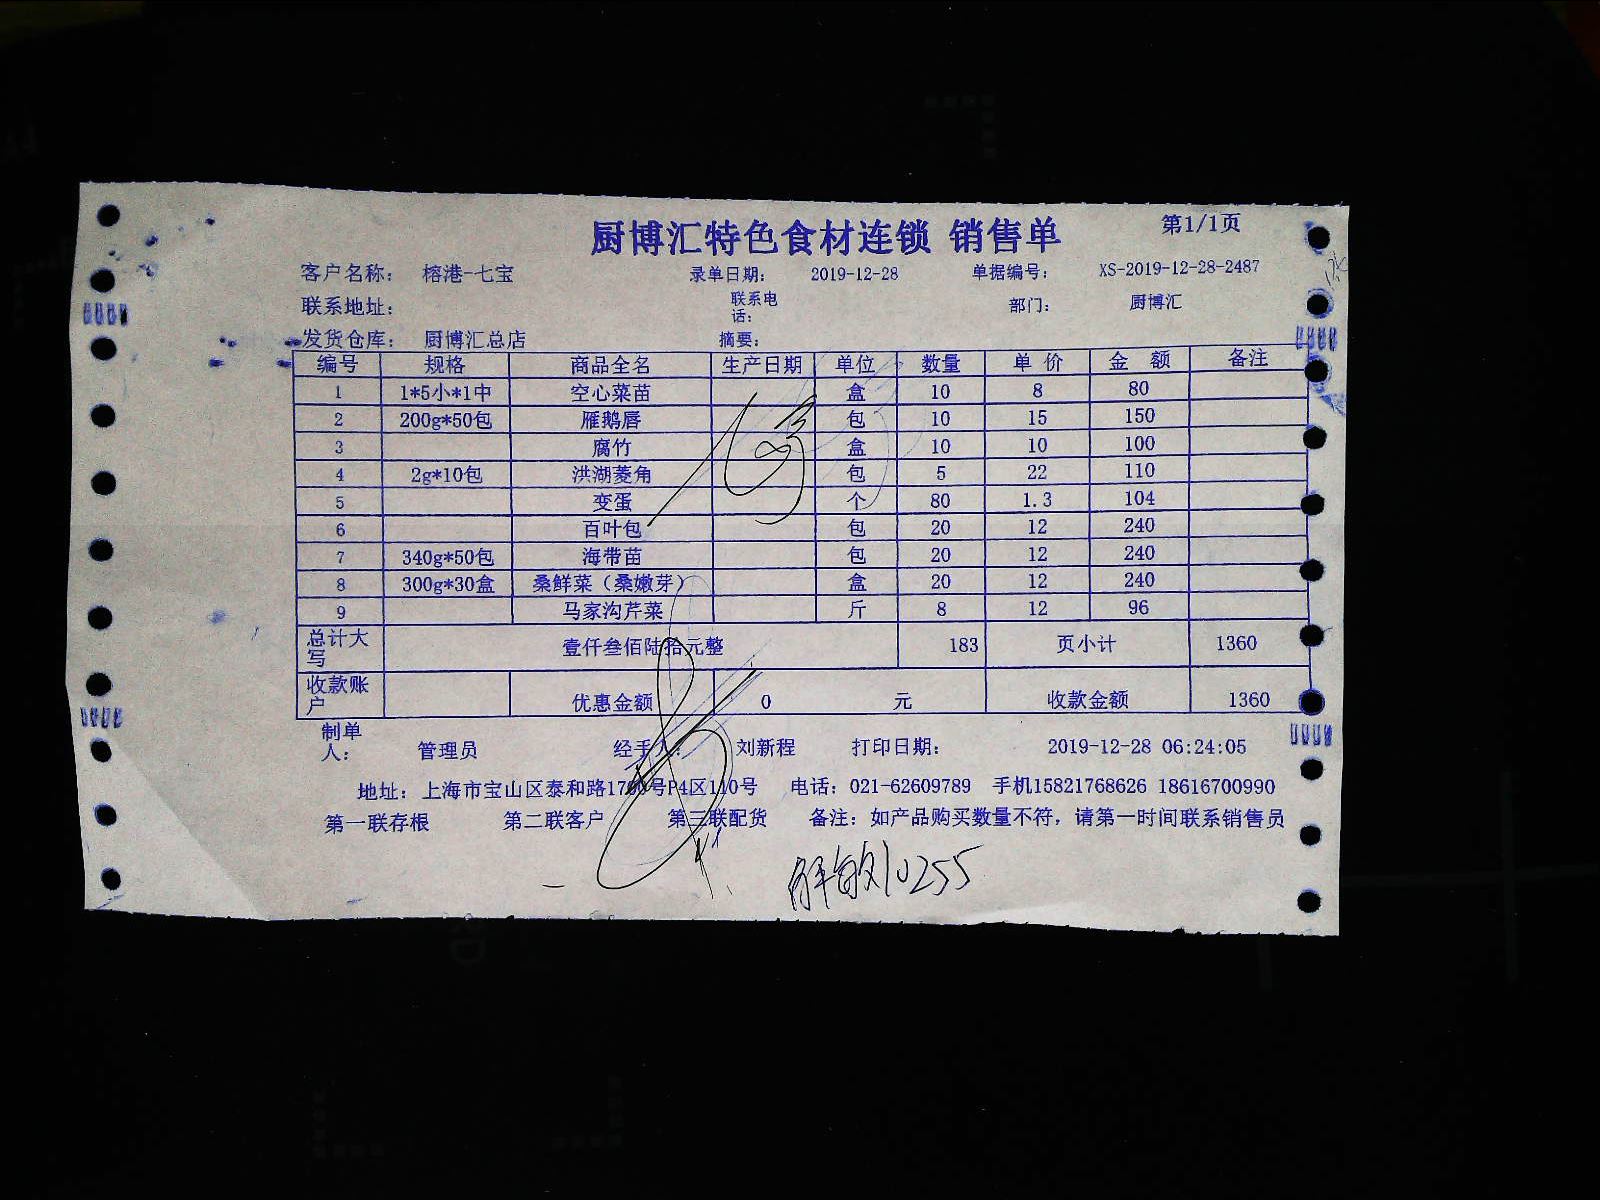 厨博汇特色食材连锁 销售单 第1/1页
客户名称: 榕港-七宝 录单日期: 2019-12-28 单据编号: XS-2019-12-28-2487
联系地址: 联系电话: 部门: 厨博汇
发货仓库: 厨博汇总店 摘要:
编号 规格 商品全名 生产日期 单位 数量 单价 金额 备注
1 1*5小*1中 空心菜苗 盒 10 8 80
2 200g*50包 雁鹅唇 包 10 15 150
3 腐竹 盒 10 10 100
4 2g*10包 洪湖菱角 包 5 22 110
5 变蛋 个 80 1.3 104
6 百叶包 包 20 12 240
7 340g*50包 海带苗 包 20 12 240
8 300g*30盒 桑鲜菜（桑嫩芽） 盒 20 12 240
9 马家沟芹菜 斤 8 12 96
总计大写 壹仟叁佰陆拾元整 183 页小计 1360
收款账户 优惠金额 0 元 收款金额 1360
制单人: 管理员 经手人: 刘新程 打印日期: 2019-12-28 06:24:05
地址: 上海市宝山区泰和路17 号P4区110号 电话: 021-62609789 手机15821768626 18616700990
第一联存根 第二联客户 第三联配货 备注: 如产品购买数量不符，请第一时间联系销售员
解敏10255